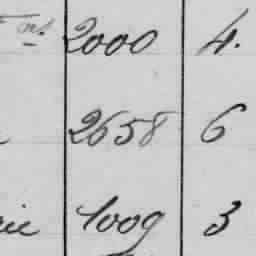 2000 4.
2658 6
1009 3